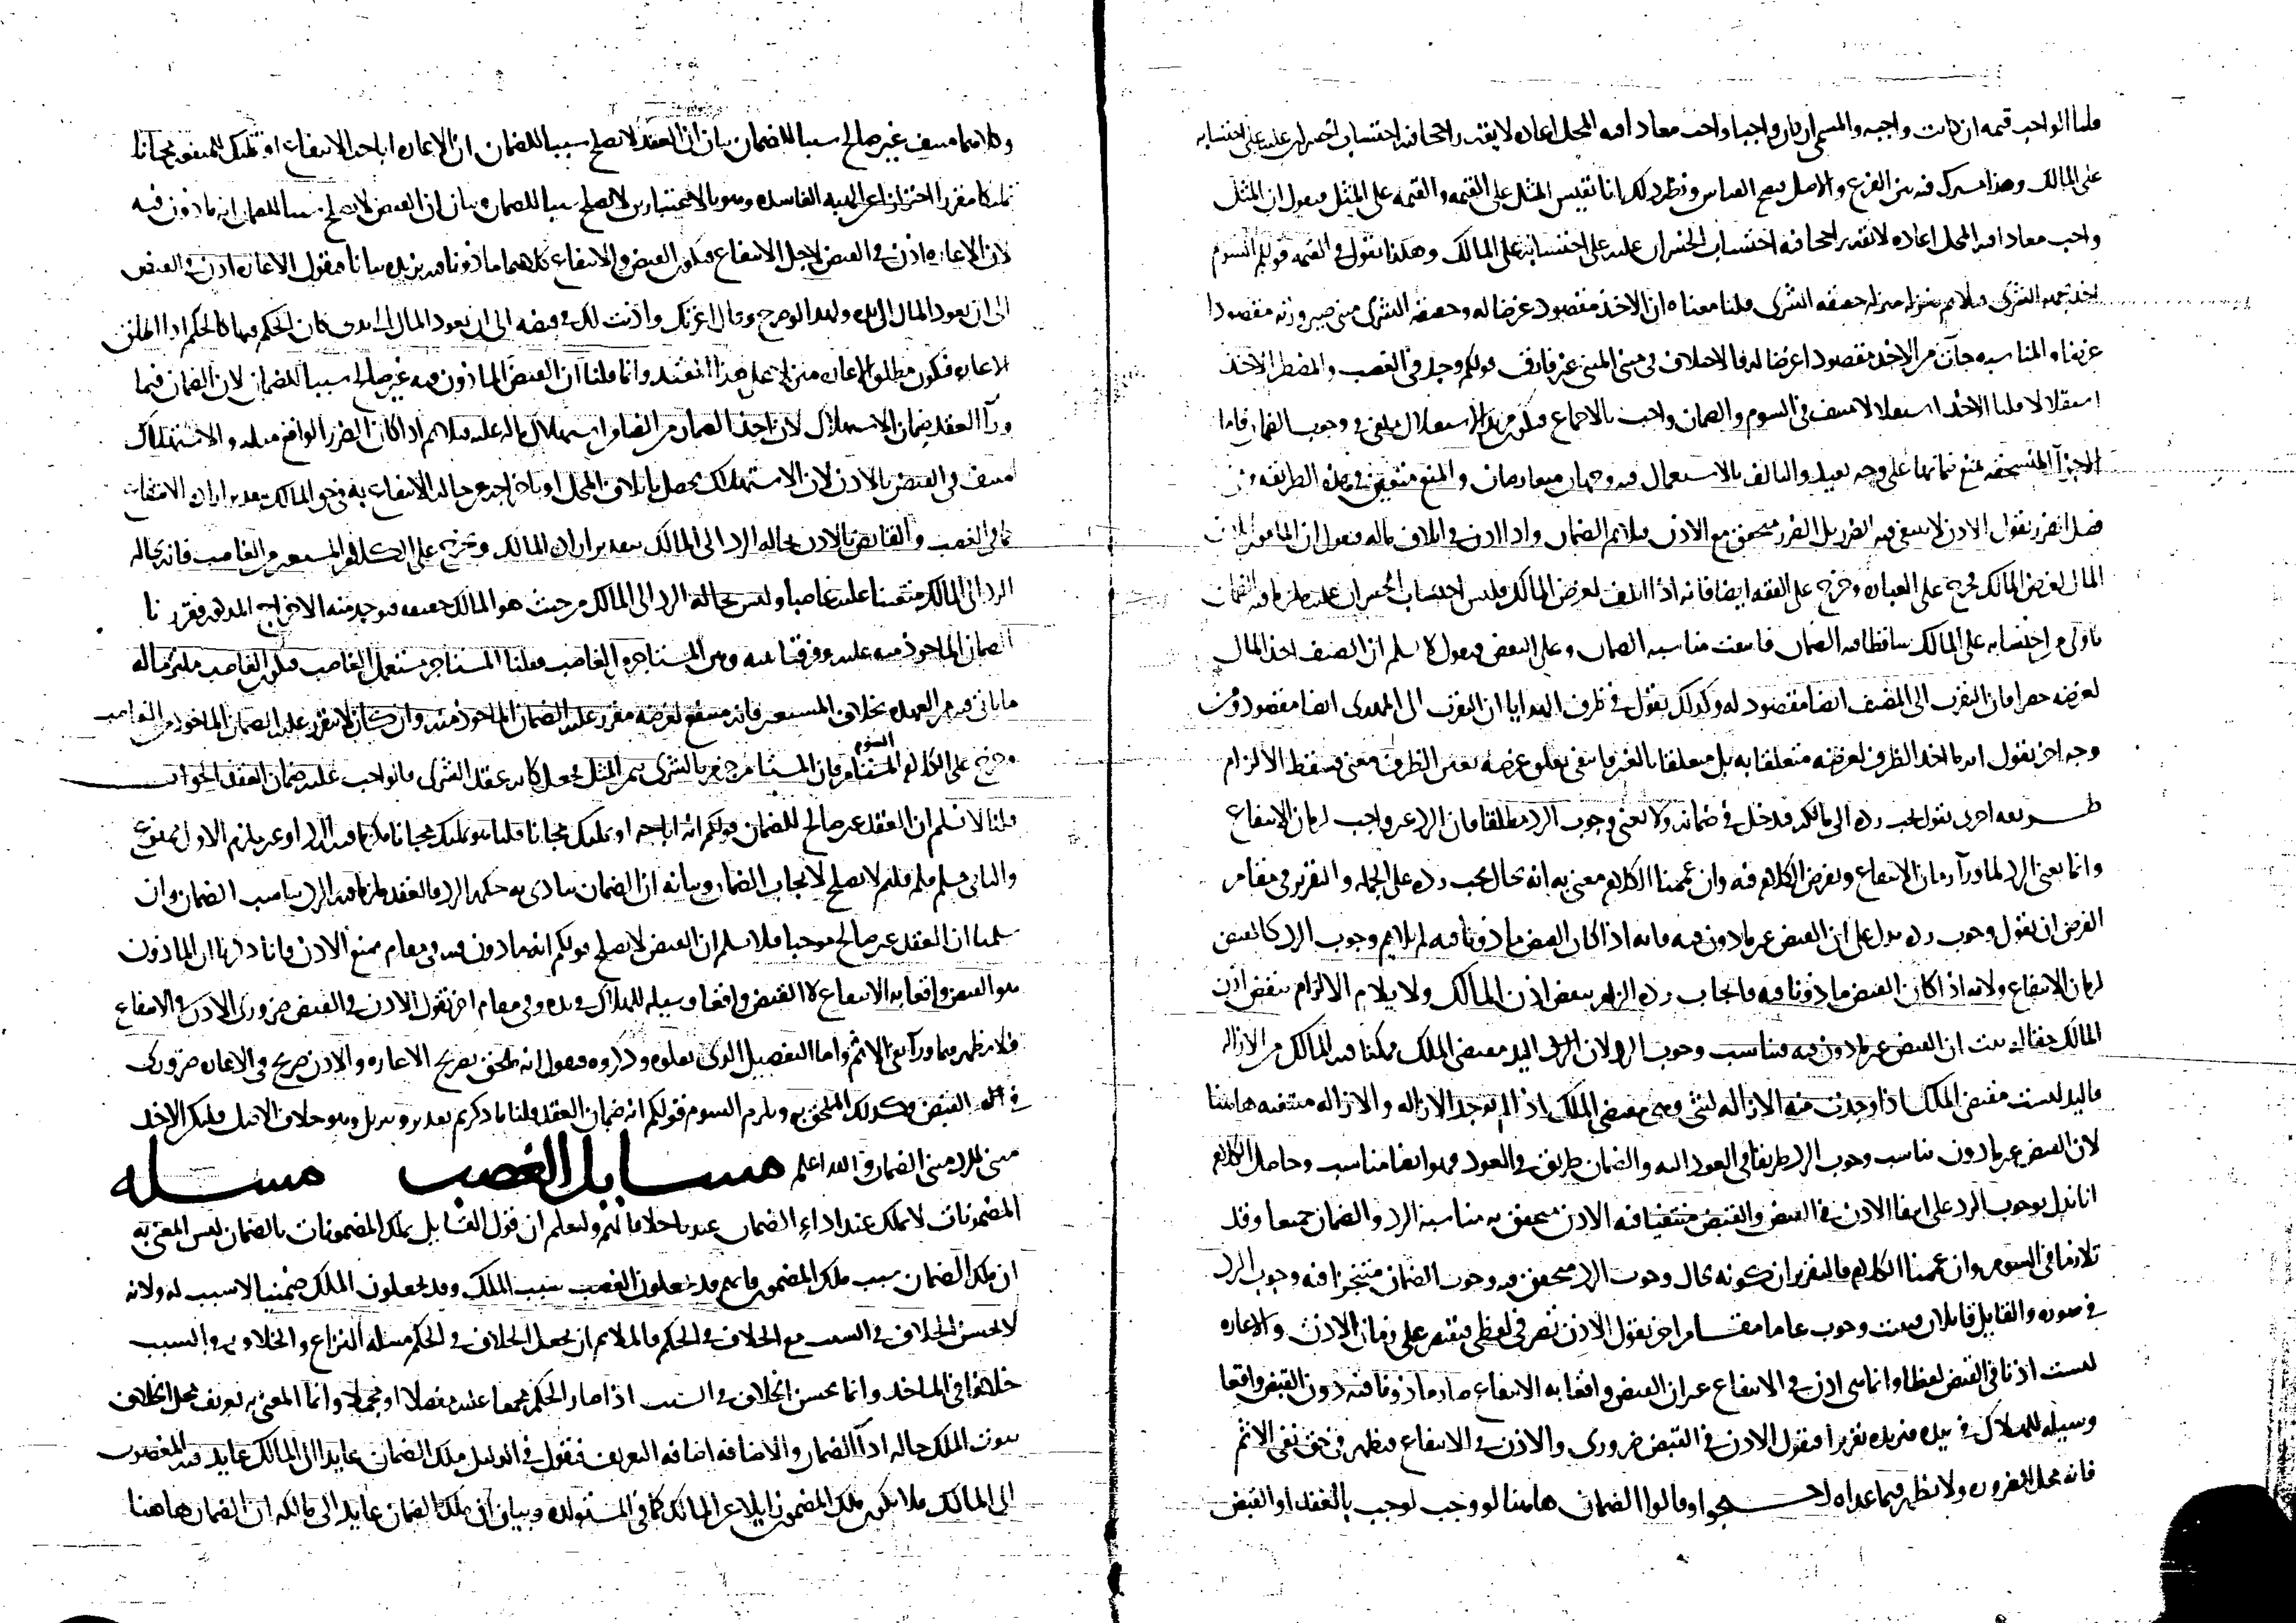 قلنا الواجب قيمه ان كانت واجبه والمسمى ان كان واجبا واجب معاد افيه المحل اعاده لا يقدر راجحا فيه احتساب الخسران عليه على احتسابه
على المالك وهذا مشترك فيه بين الفرع والاصل فيصح القياس ونظير ذلك انا نقيس المثل على القيمه والقيمه على المثل فنقول ان المثل
واجب معاد افيه المحل اعاده لا يقدر راجحا فيه احتساب الخسران عليه على احتسابه على المالك وهكذا نقول في القيمه قولكم السوم
اخذ بجهه الشرى فلا نم ينزل منزله حقيقه الشرى قلنا معناه ان الاخذ مقصود غرضا له وحقيقه الشرى مبنى صيرورته مقصودا
غرضا والمناسبه جات من الاخذ مقصودا غرضا له فالاختلاف في مبنى المبنى غير فارق قولكم وجد في الغصب والمضطر الاخذ
استقلالا قلنا الاخذ استقلالا منتف في السوم والضمان واجب بالاجماع الاستقلال ملغى في وجوب الضمان فاما
الاجزا المنسحقه نمنع ضمانها على وجه بعيد والتالف بالاستعمال فيه وجهان متعارضان والمنع متعين في هذه الطريقه
فصل الضرر نقول الاذن لا ينتفى فيه الضرر بل الضرر متحقق مع الاذن فيلايم الضمان واذا اذن في اتلاف ماله فنقول ان المامور
المال لغرض المالك فخرج على العباره وخرج على الفقه ايضا فانه اذا اتلف لغرض المالك فليس احتساب الخسران عليه
باولى من احتسابه على المالك ساقطا فيه الضمان فانتفت مناسبه الضمان وعلى النقض فنقول لا نسلم ان الضيف اخذ المال
لغرضه حصرا فان التقرب الى المضيف ايضا مقصود له وكذلك نقول في ظرف الهدايا ان التقرب الى المهدى ايضا مقصود ومن
وجه اخر نقول انه ما اخذ الظرف لغرضه متعلقا به بل متعلقا بالغير فانتفى تعلق غرضه بعين الظرف معنى فسقط الالزام
طريقه اخرى نقول يجب رده الى مالكه فدخل في ضمانه ولا نعنى وجوب الرد مطلقا فان الرد غير واجب لزمان الانتفاع
وانما نعنى الرد لما ورا زمان الانتفاع ونفرض الكلام فيه وان عممنا الكلام معنى به انه بحال يجب رده على الجمله والتقرير في مقام
الفرض ان نقول وجوب رده يدل على ان القبض غير ماذون فيه فانه اذا كان القبض ماذونا فيه لم يلايم وجوب الرد كالقبض
لزمان الانتفاع ولانه اذا كان القبض ماذونا فيه فايجاب رده الزام بنقض اذن المالك ولا يلايم الالزام بنقض اذن
المالك حقا له ثبت ان القبض غير ماذون فيه فيناسب وجوب الرد لان الرد اليد مقتضى الملك فيكنا فيه المالك من الازاله
فاليد ليست مقتضى الملك اذا وجدت منه الازاله لشى وهى مقتضى الملك اذا لم توجد الازاله والازاله منتفيه هاهنا
لان القبض غير ماذون يناسب وجوب الرد طريقا في العود اليه والضمان طريق في العود فهو ايضا مناسب وحاصل الكلام
انا ندل بوجوب الرد على انتفا الاذن في القبض والقبض منتفيا فيه الاذن متحقق به مناسبه الرد والضمان جميعا وقد
تلازما في السوم وان عممنا الكلام فالتقرير ان كونه بحال وجوب الرد متحقق فيه وجوب الضمان متنجزا فيه وجوب الرد
في صوره والقايل قايلان فيثبت وجوب عاما مقام اخر نقول الاذن تصرف لفظى فيقتصر على زمان الاذن والاعاره
ليست اذنا في القبض لفظا وانما هى اذن في الانتفاع غير ان القبض واقعا به الانتفاع صار ماذونا فيه دون القبض واقعا
وسيله للهلاك في يده ونزيده تقريرا فنقول الاذن في القبض ضرورى والاذن في الانتفاع فيظهر في حق نفى الاثم
فانه محل الضروره ولا يظهر فيما عداه احتجوا وقالوا الضمان هاهنا لو وجب لوجب بالعقد او القبض
وكلاهما منتف غير صالح سببا للضمان بيان ان العقد لا يصلح سببا للضمان ان الاعاره اباحه الانتفاع او تمليك المنفعه مجانا
تمليكا مقررا احترازا عن الهبه الفاسده وهو بالاعتبارين لا يصلح سببا للضمان بيان ان القبض لا يصلح سببا للضمان انه ماذون فيه
لان الاعاره اذن في القبض لاجل الانتفاع فيكون القبض والانتفاع كلاهما ماذونا فيه نزيده بيانا فنقول الاعاره اذن في القبض
الى ان يعود المال الى يده ولهذا لو صرح وقال اعرتك واذنت لك في قبضه الى ان يعود المال الى يدى كان الحكم فيها كالحكم اذا اطلق
الاعاره فيكون مطلق الاعاره منزلا على هذا المقيد وانما قلنا ان القبض الماذون فيه غير صالح سببا للضمان لان الضمان فيما
ورا العقد ضمان الاستهلاك لان اخذ الضمان من الضامن استهلاك ماله عليه فيلايم اذا كان الضرر الواقع مثله والاستهلاك
منتف في القبض بالاذن لان الاستهلاك يحصل باتلاف المحل او باخراجه عن حاله الانتفاع به في حق المالك بتقدير اراده الانتفاع
كما في الغصب والقابض بالاذن بحاله الرد الى المالك بتقدير اراده المالك وخرج على الكلام المستعير من الغاصب فانه بحاله
الرد الى المالك متعينا عليه غاصبا وليس بحاله الرد الى المالك من حيث هو المالك حقيقه فيوجد منه الاخراج المذكور فقررنا
الضمان الماخوذ منه عليه وفرقنا بينه وبين المستاجر من الغاصب فقلنا المستاجر مستعمل الغاصب فيكون الغاصب ملتزما له
ما ياتى فيه من العهده بخلاف المستعير فانه منتفع لغرضه مقرر عليه الضمان الماخوذ منه وان كان لا يتقرر عليه الضمان الماخوذ من الغاصب
وخرج على الكلام المستام السوم فان المستام رضى بالشرى بثمن المثل فجعل كانه عقد الشرى فالواجب عليه ضمان العقد الجواب
قلنا لا نسلم ان العقد غير صالح للضمان قولكم انه اباحه او تمليك مجانا قلنا هو تمليك مجانا ملزما فيه الرد او غير ملزم الاول ممنوع
والثانى مسلم فلم قلتم لا يصلح لايجاب الضمان وبيانه ان الضمان يتادى به حكمه الرد فالعقد ملزما فيه الرد يناسب الضمان وان
سلمنا ان العقد غير صالح موجبا فلا نسلم ان القبض لا يصلح قولكم انه ماذون فيه في مقام نمنع الاذن فانا ذكرنا ان الماذون
هو القبض واقعا به الانتفاع لا القبض واقعا وسيله للهلاك في يده وفي مقام اخر نقول الاذن في القبض ضرورى الاذن في الانتفاع
فلا يظهر فيما ورا نفى الاثم واما التفصيل الذى نقلوه وذكروه فنقول انه ملحق بصريح الاعاره والاذن صريح في الاعاره ضرورى
في القبض وكذلك الملحق به ويلزم السوم قولكم انه ضمان العقد قلنا ما ذكرتم تقدير وتنزيل وهو خلاف الاصل فليكن الاخذ
مبنى للرد مبنى الضمان والله اعلم مسايل الغصب مسله
المضمونات لا تملك عند اداء الضمان عندنا خلافا لهم وليعلم ان قول القايل يملك المضمونات بالضمان ليس المعنى به
ان ملك الضمان سبب ملك المضمون فانهم قد يجعلون الغصب سبب الملك وقد يجعلون الملك ضمنيا لا سبب له ولانه
لا يحسن الخلاف في السبب مع الخلاف في الحكم فالملايم ان يجعل الخلاف في الحكم مسله النزاع والخلاف في السبب
خلافا في الماخذ وانما يحسن الخلاف في السبب اذا صار الحكم مجمعا عليه مفصلا او مجملا وانما المعنى به تعريف محل الخلاف
ثبوت الملك حاله اداء الضمان والاضافه اضافه التعريف فنقول في الدليل ملك الضمان عايد الى المالك عايد فيه المغصوب
الى المالك فلا يكون ملك المضمون زايلا عن المالك كما في المستولده وبيان ان ملك الضمان عايد الى مالكه ان الضمان هاهنا